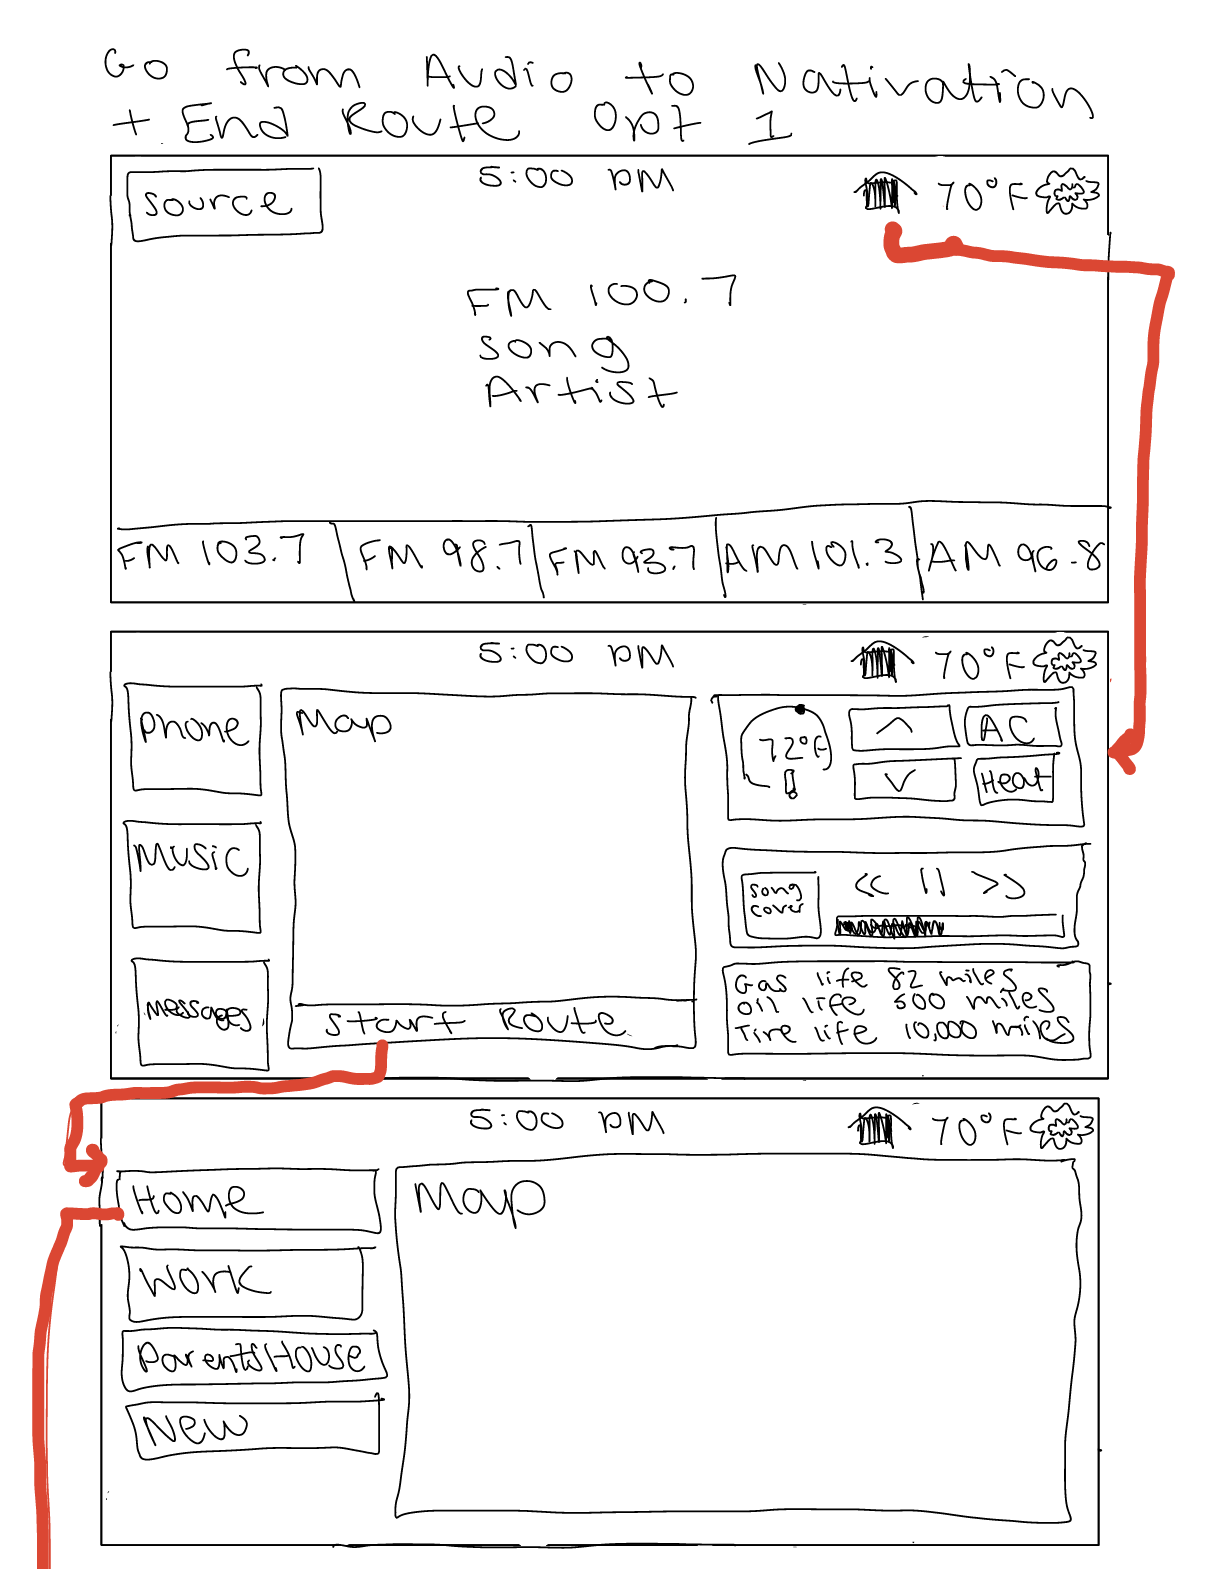 Go from Audio to Nativation
+ End Route Opt 1
Source
5:00 PM
70°F
FM 100.7
Song
Artist
FM 103.7
FM 98.7
FM 93.7
AM 101.3
AM 96.8
5:00 PM
70°F
Phone
Music
Messages
Map
Start Route
72°F
^
AC
v
Heat
Song
cover
<< || >>
Gas life 82 miles
Oil life 500 miles
Tire life 10,000 miles
5:00 PM
70°F
Home
Work
Parents House
New
Map